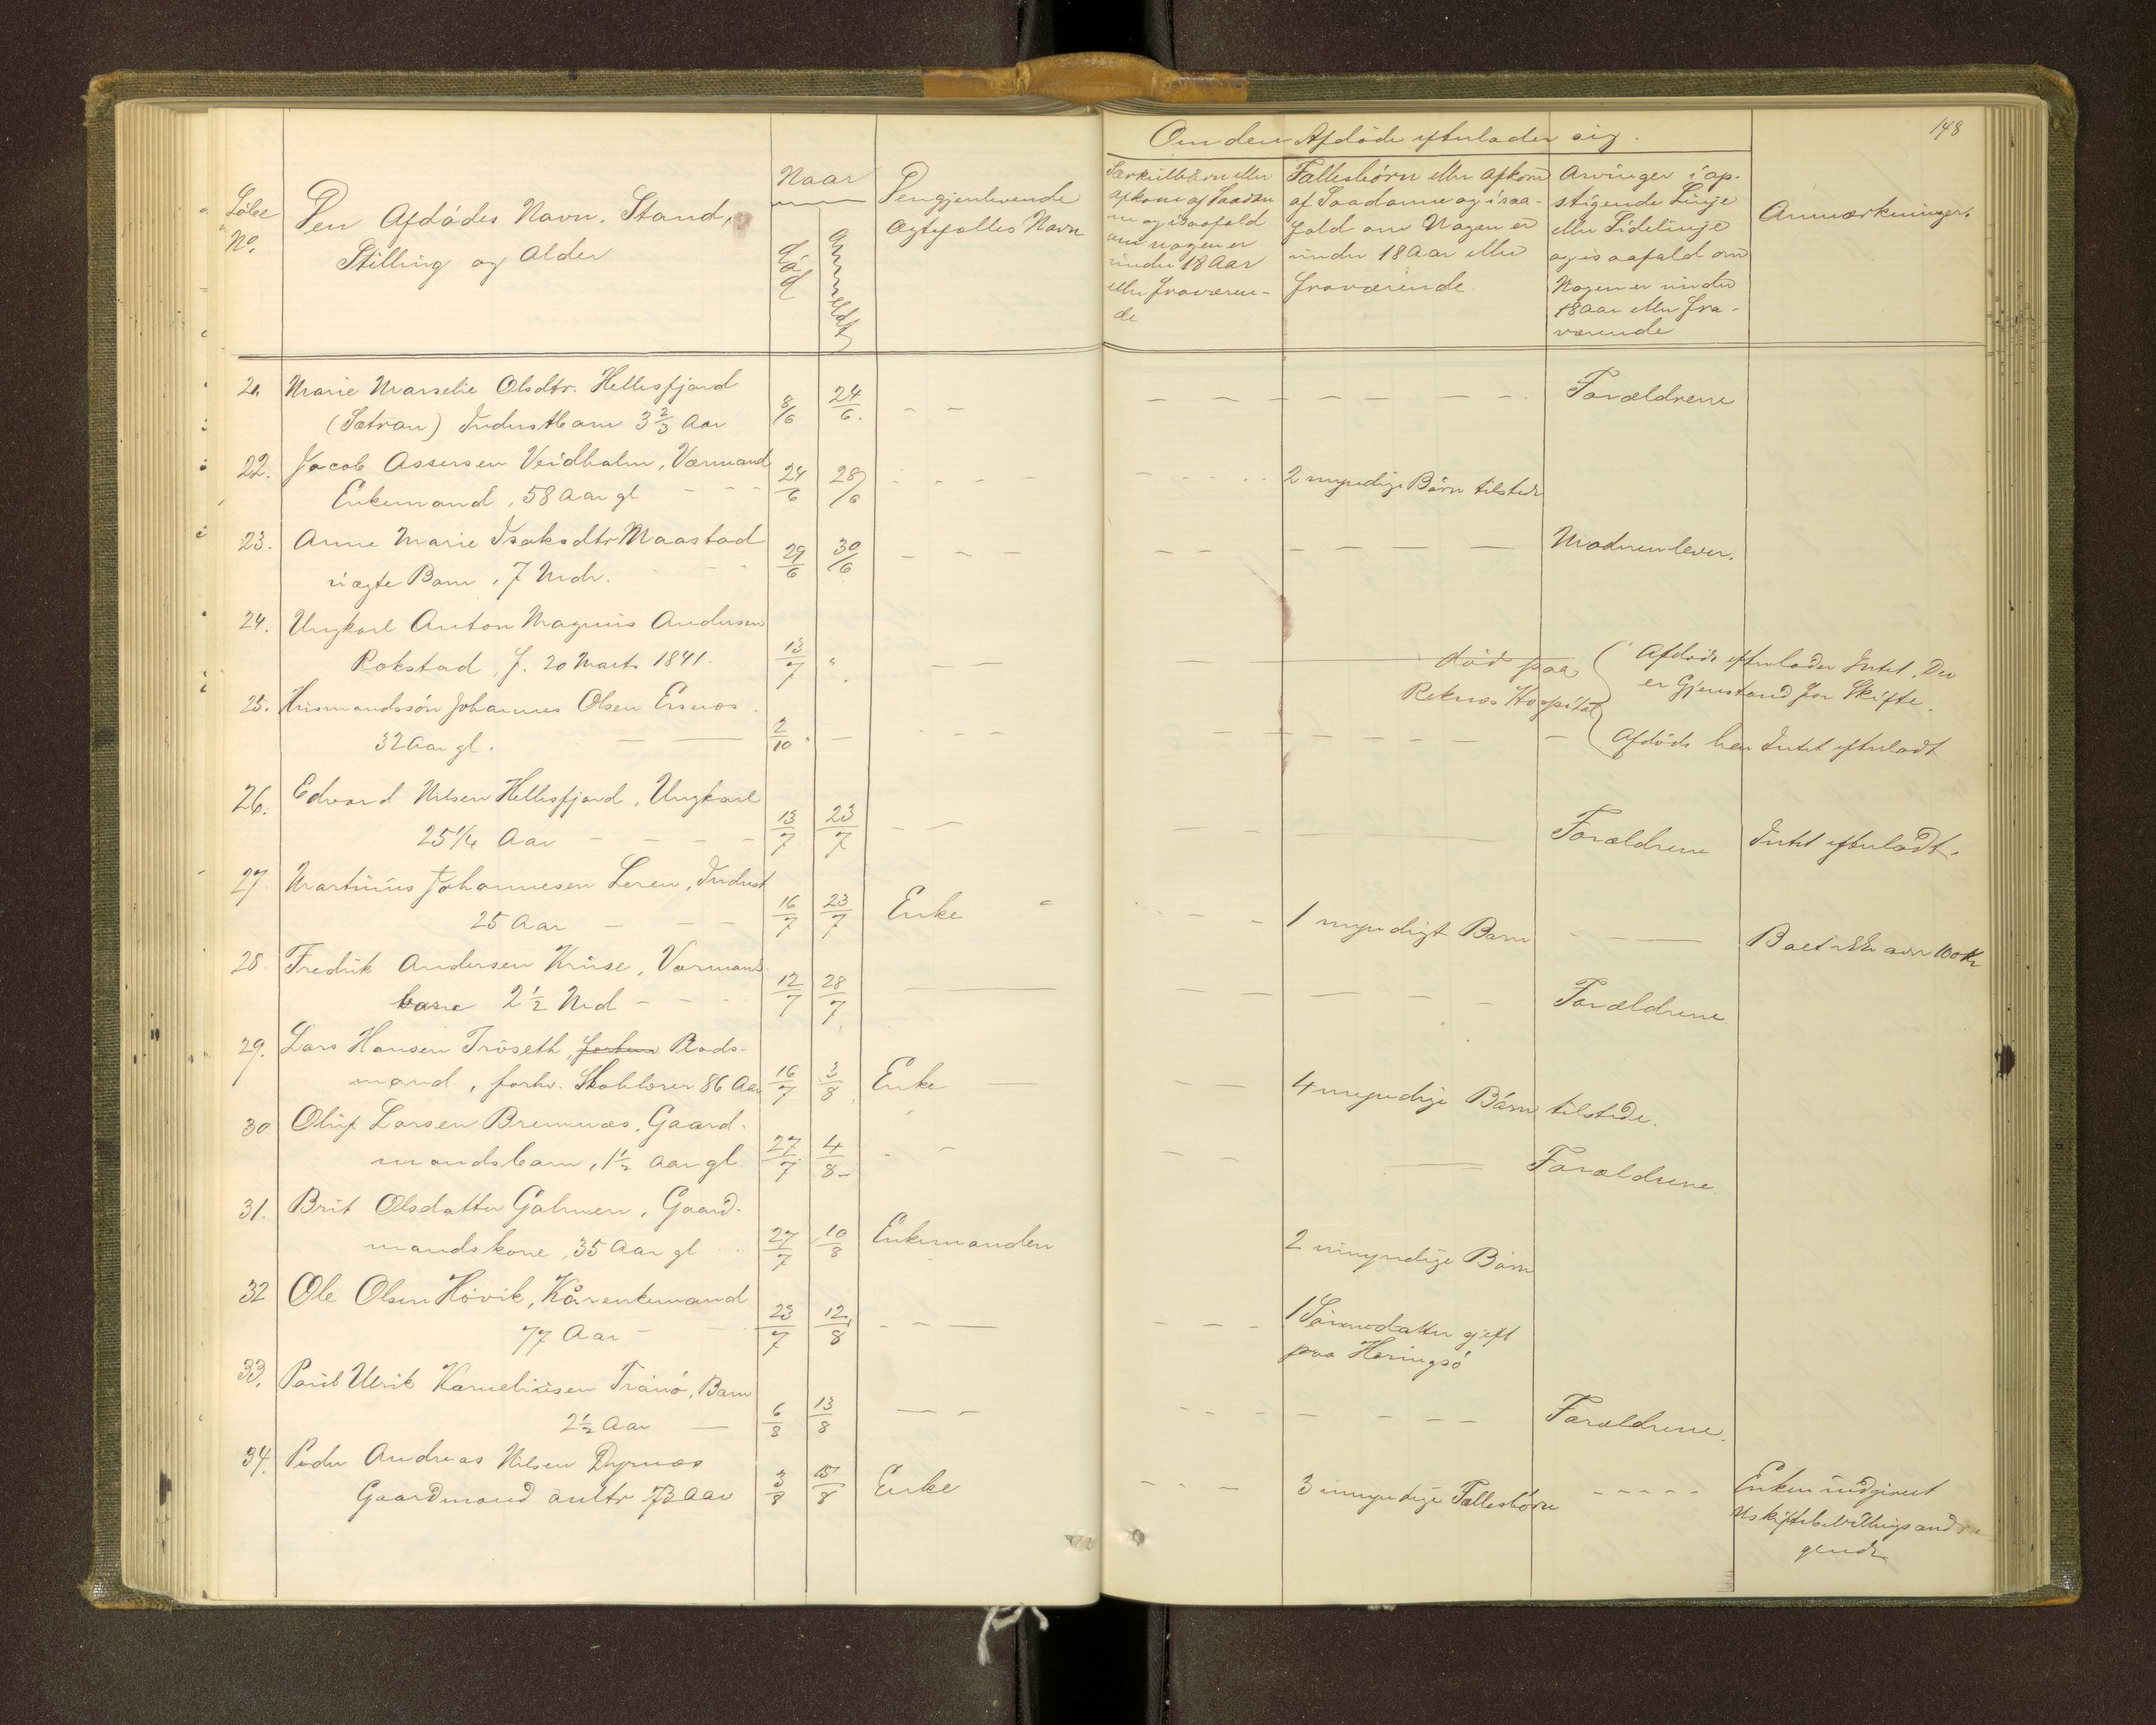 148
Om den Afdöde efterlader sig.
Löbe No.
Den Afdödes Navn, Stand,
Stilling og Alder
Naar
död
Anmeldt
Den gjenlevende
Ægtefælles Navn
Særkuldbörn eller
Afkom af Saadan
ne og isaafald
om nogen er
under 18 Aar
eller fraværen-
de
Fællesbörn eller Afkom
af Saadanne og i saa-
fald om Nogen er
under 18 Aar eller
fraværende.
Arvinger i op-
stigende Linje
eller Sidelinje
og isaafald om
Nogen er under
18 Aar eller fra-
værende
Anmærkninger.
21. Marie Marselie Olsdtr. Hellesfjord
(Sætran) Inderstbarn 3 2/3 Aar 8/6 24/6. Forældrene
22. Jacob Assersen Veidholm, Værmand
Enkemand, 58 Aar gl 24/6 28/6 2 myndige Börn tilstede
23. Anne Marie Isaksdtr Maastad
uægte Barn, 7 Mdr. 29/6 30/6 Moderen lever.
24. Ungkarl Anton Magnus Andersen
Rokstad, f. 20 Marts 1841. 13/7 " död paa Afdöde efterlader Intet, Der
Reknæs Hospital er Gjenstand for Skifte.
25. Husmandssön Johannes Olsen Ersnæs
32 Aar gl. 2/10 Afdöde har Intet efterladt
26. Edvard Nilsen Hellesfjord, Ungkarl
25 1/4 Aar 13/7 23/7 Forældrene Intet efterladt.
27. Martinus Johannesen Leren, Inderst
25 Aar 16/7 23/7 Enke 1 myndigt Barn Boet ikke over 100 Kr
28. Fredrik Andersen Kruse, Værmands-
barn 2 1/2 Md 12/7 28/7 Forældrene
29. Lars Hansen Tröseth, Baads-
mand, forhv. Skolelærer 86 Aar 16/7 3/8 Enke 4 myndige Börn tilstede.
30 Oluf Larsen Bremnæs, Gaard-
mandsbarn, 1 1/2 Aar gl 27/7 4/8 Forældrene.
31. Brit Olsdatter Gahnen, Gaard-
mandskone, 35 Aar gl 27/7 10/8 Enkemanden 2 umyndige Börn
32 Ole Olsen Hövik, Kårenkemand
77 Aar 23/7 12/8 1 Sönnedatter gift
paa Haringsö
33. Paul Ulrik Korneliusen Tranö, Barn
2 1/2 Aar 6/8 13/8 Forældrene.
34. Peder Andreas Nilsen Dyrnæs
Gaardmand anltr 73 Aar 3/8 15/8 Enke 3 umyndige Fællesbörn Enken indgivet
Uskiftebevillingsand
gende